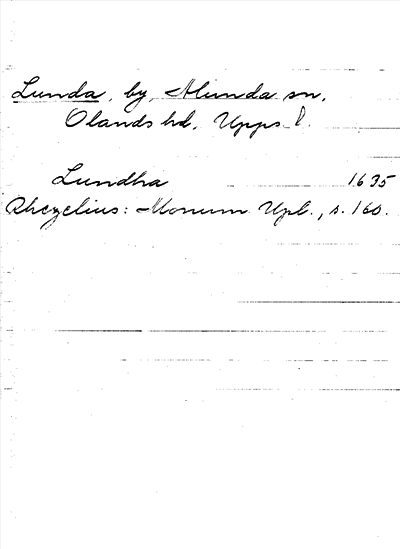 Lunda, by, Alunda sn,
Olands hd, Upps l.
Lundha 1635
Rhezelius: Monum Upl., s. 160.